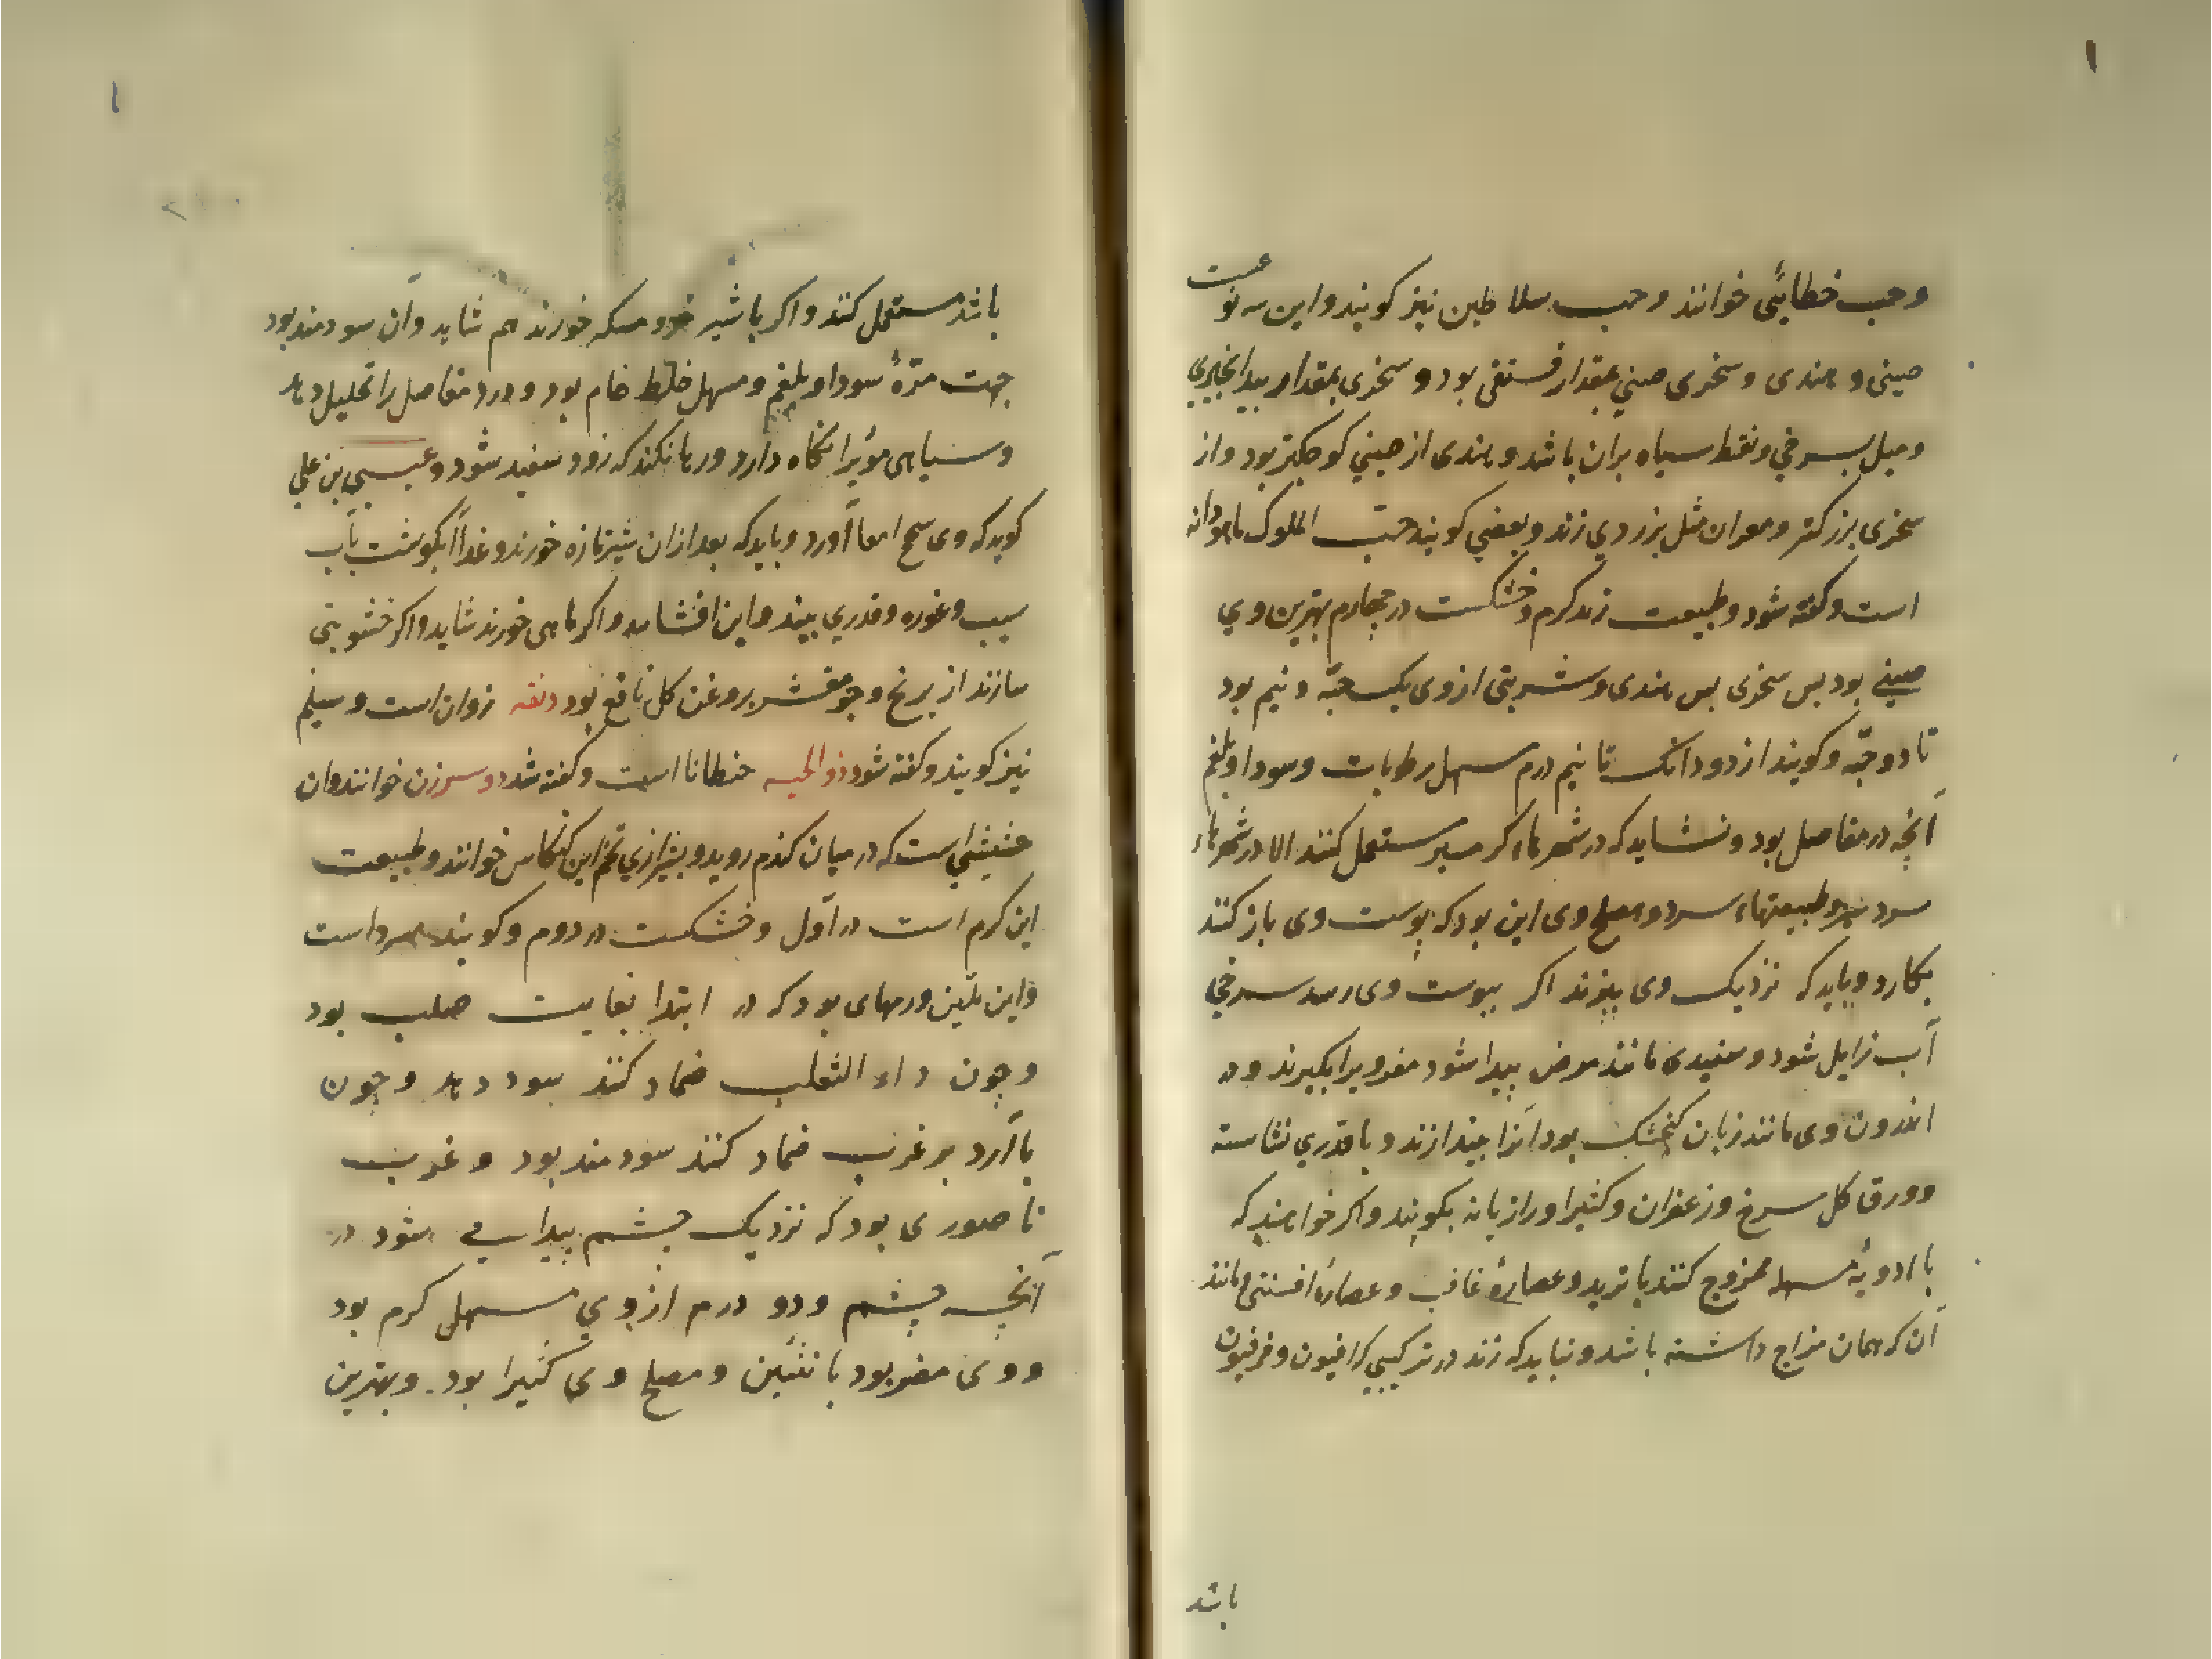 ۱
وحب خطائی خوانند وحب سلاطین نیز کویند واین سه نوعست
صینی و هندی و سخری صینی بمقدار فستقی بود و سخری بمقدار بیدانجیری
ومیل بسرخی ونقط سیاه بران باشد وهندی از صینی کوجکتر بود واز
سخری بزرکتر ومعران مثل بزردی زند وبعضی کویند حبّ الملوک ماهودانه
است وکفته شود وطبیعت زند کرم وخشکست در جهارم بهترین وی
صینی بود بس سخری بس هندی وشربتی ازوی یک حبّه ونیم بود
تا دو حبّه وکویند از دو دانک تا نیم درم مسهل رطوبات وسودا وبلغم
آنجه در مفاصل بود ونشاید که در شهرهاء کرمسیر مستعمل کنند الا در شهرهاء
سردسیر وطبیعتهاء سرد ومصلح وی این بود که پوست وی باز کنند
بکارد وباید که نزدیک وی نبرند اکر ببوست وی رسد سرخی
آب زایل شود وسفیدی مانند مرض پیدا شود مغز ویرا بکیرند ودر
اندرون وی مانند زبان کنجشک بود آنرا بیندازند وبا قدری نشاسته
وورق کل سرخ وزعفران وکثیرا ورازیانه بکوبند واکر خواهند که
با ادویهٔ مسهله ممزوج کنند با تربد وعصارهٔ غافث وعصارهٔ افسنتین ومانند
آن که همان مزاج داشته باشد ونباید که زند در ترکیبی که افیون وفرفیون
باشد
۱
باشد مستعمل کنند واکر با شیر خورد مسکه خورند هم شاید وآن سودمند بود
جهت مرّهٔ سودا وبلغم ومسهل خلط خام بود ودرد مفاصل را تحلیل دهد
وسیاهی مویرا نکاه دارد ورها نکند که زود سفید شود وعیسی بن علی
کوید که وی سحج امعا آورد وباید که بعد ازان شیر تازه خورند وغذا آبکوشت بآب
سیب وغوره وقدری بیند واین افشاند واکر ماهی خورند شاید واکر خشو بتی
سازند از برنج وجو مقشر بروغن کل نافع بود دنقه زوان است وسیلم
نیز کویند وکفته شود ذوالحیه حنطانا است وکفته شد دوسر زن خوانند وان
حشیشی است که در میان کندم روید وبشیرازی تخم این کنکاس خوانند وطبیعت
این کرم است در اوّل وخشکست در دوم وکویند سرد است
واین ملیّن ورمهای بود که در ابتدا بغایت صلب بود
وجون داء الثعلب ضماد کنند سود دهد وجون
با آرد بر غرب ضماد کنند سودمند بود وغرب
ناصوری بود که نزدیک جشم پیدا می شود در
آنج جشم ودو درم ازوی مسهل کرم بود
ووی مضر بود بانثیین ومصلح وی کثیرا بود. وبهترین